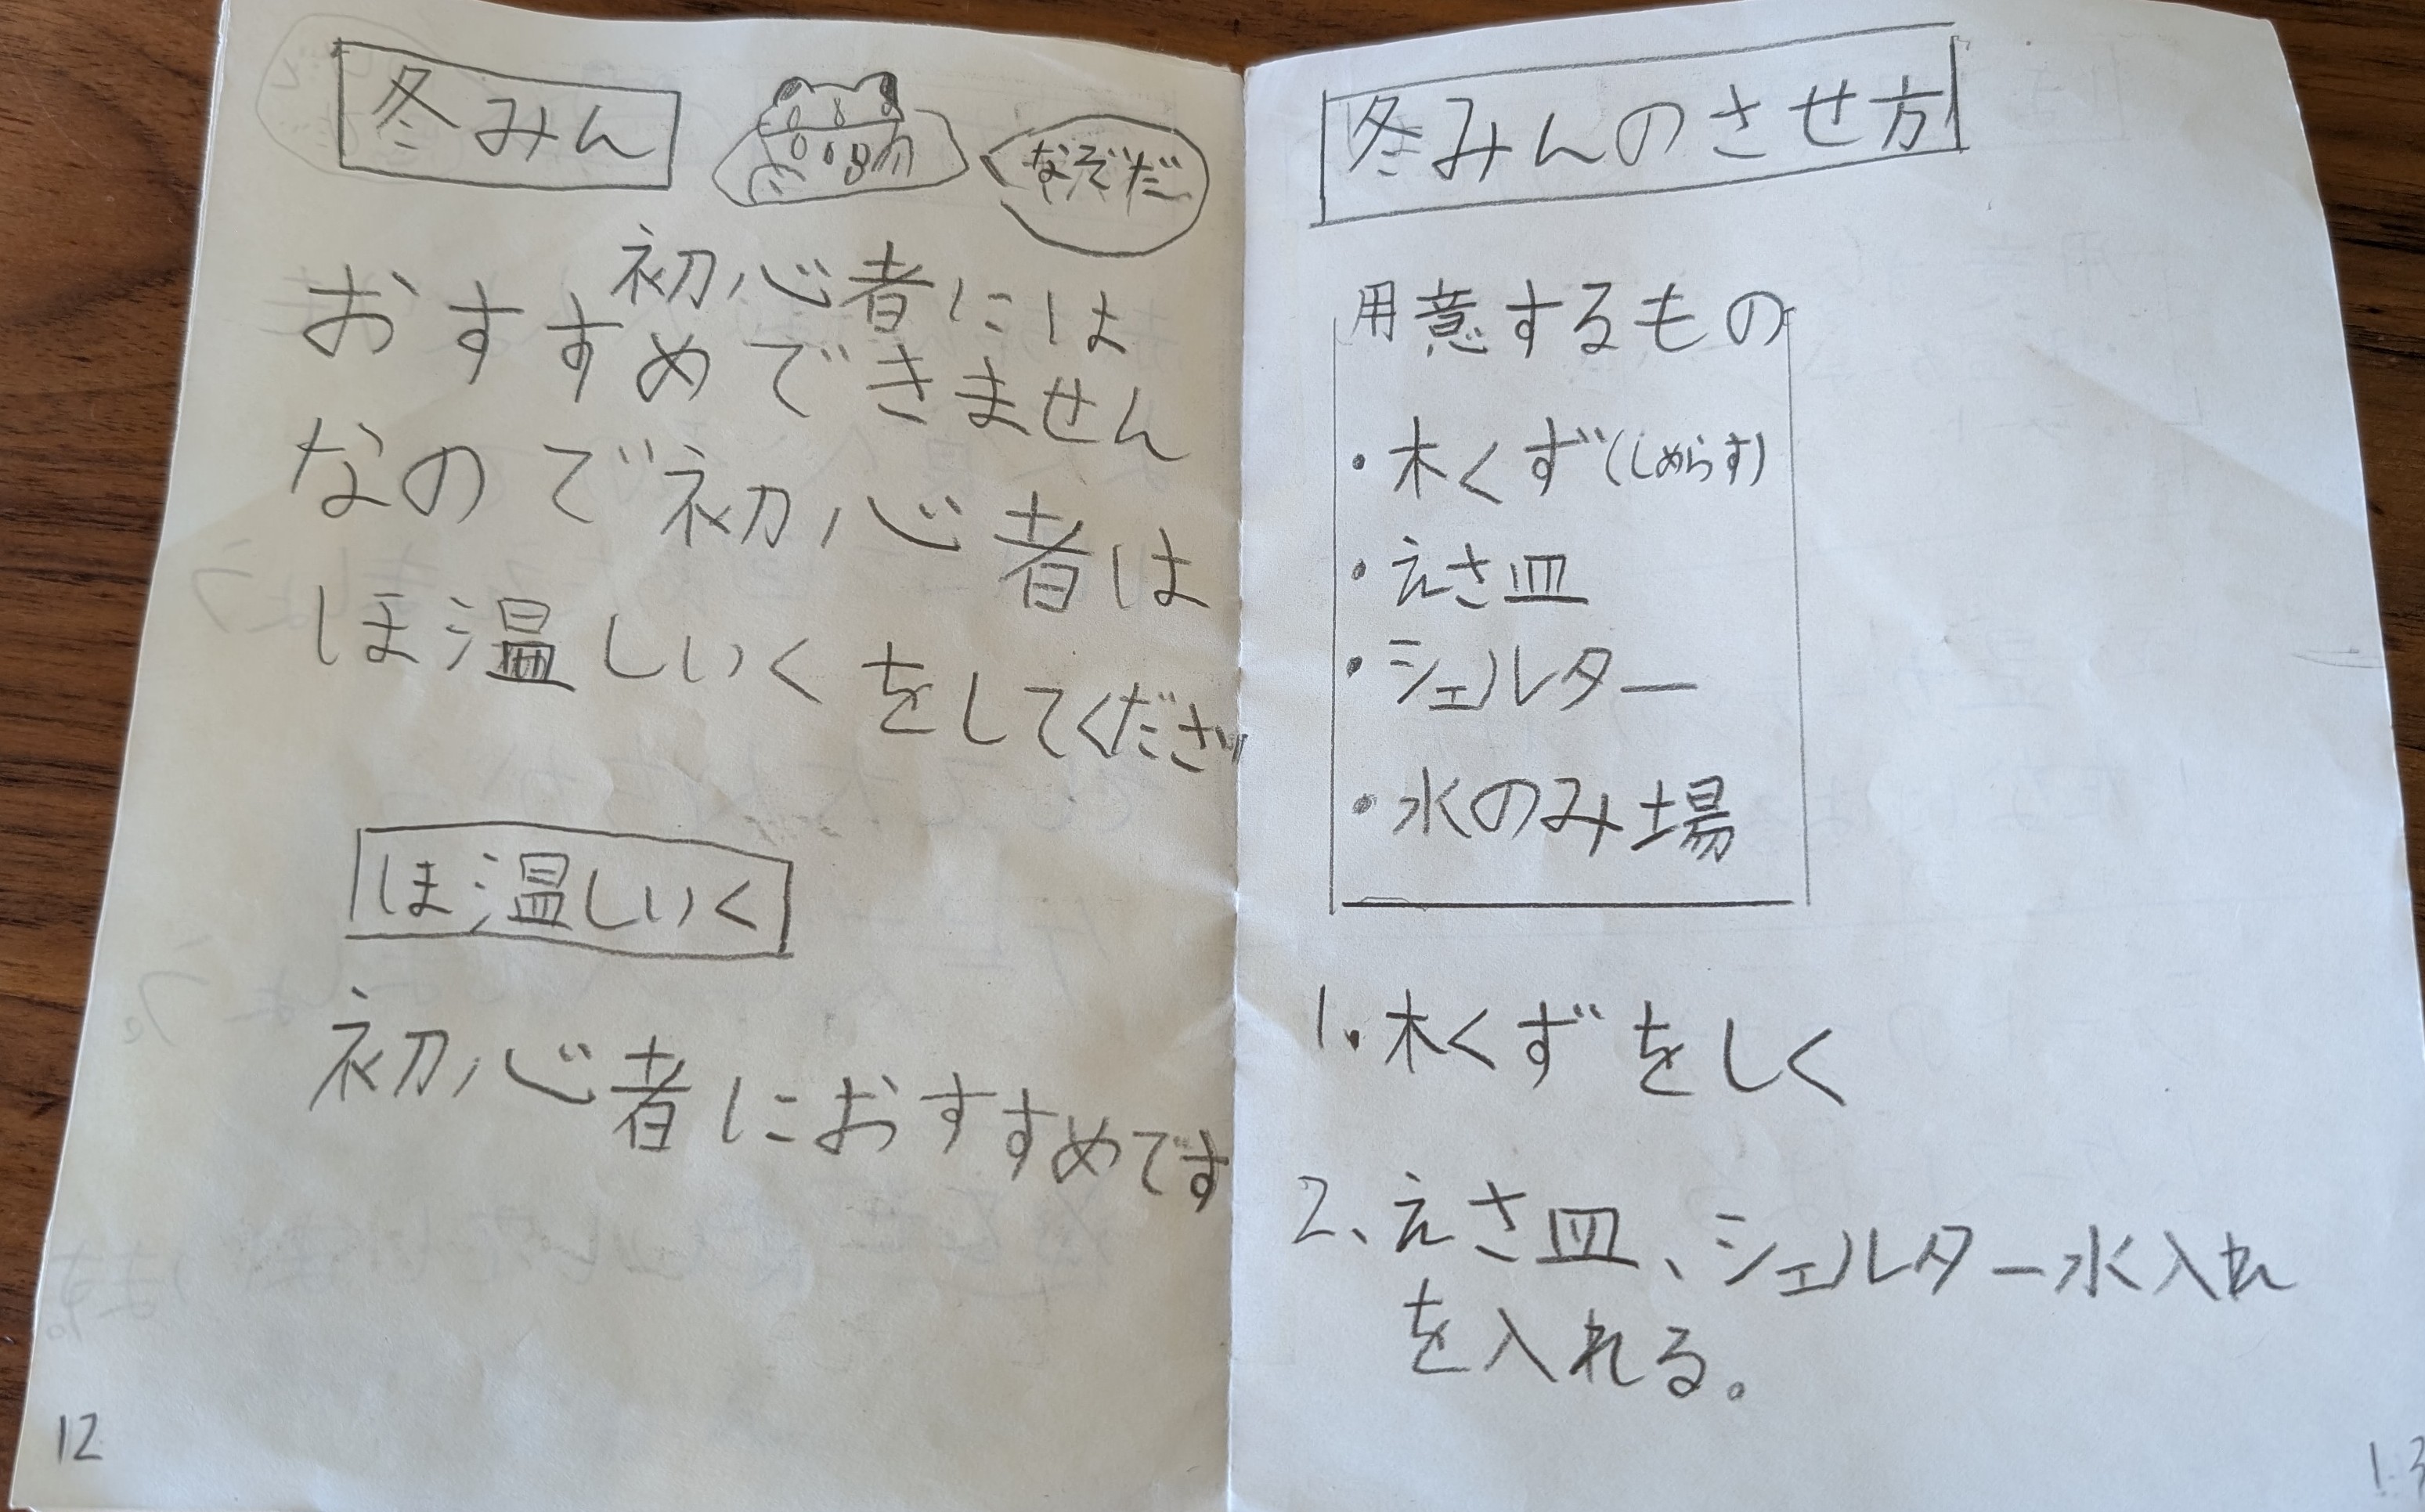 冬みん
なぞだ
初心者には
おすすめできません
なので初心者は
ほ温しいくをしてください
ほ温しいく
初心者におすすめです
12
冬みんのさせ方
用意するもの
・木くず(しめらす)
・えさ皿
・シェルター
・水のみ場
1.木くずをしく
2、えさ皿、シェルター水入れ
を入れる。
13